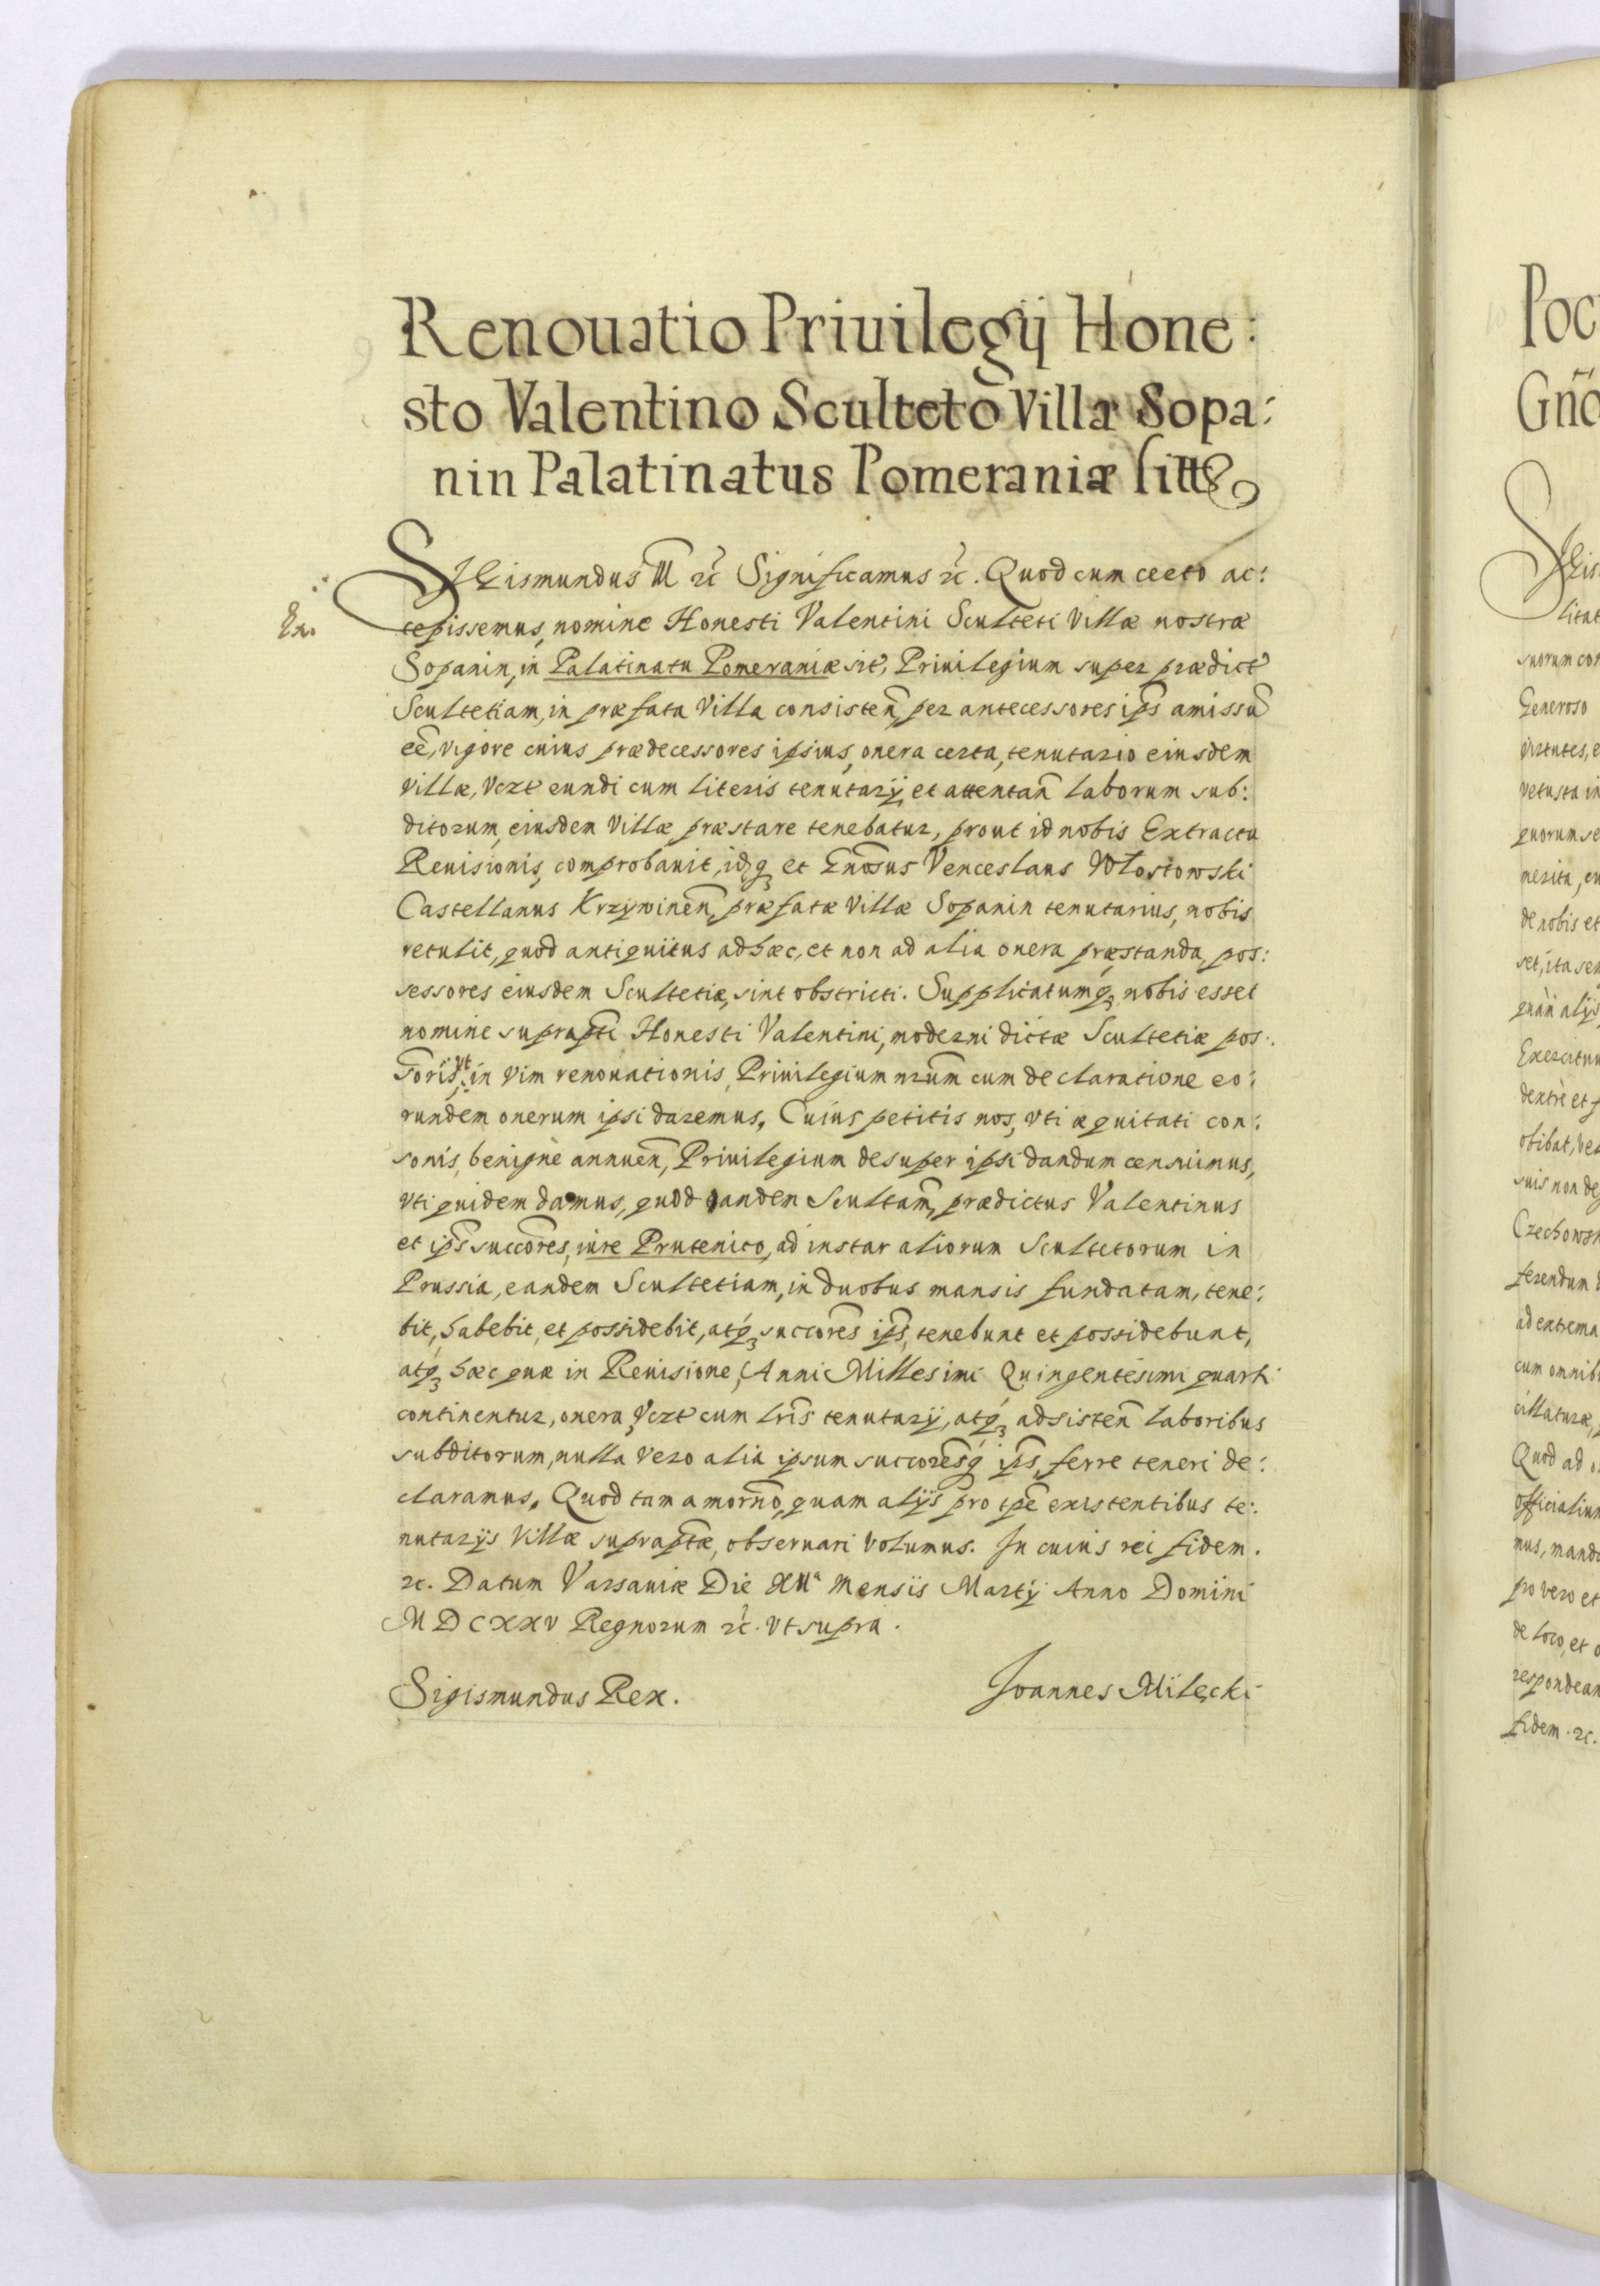 Renouatio Priuilegÿ Hone:
sto Valentino Sculteto Villæ Sopa:
nin Palatinatus Pomeraniæ sitt
SIGismundus III etc̃ Significamus etc̃. Quod cum certo ac:
cepissemus, nomine Honesti Valentini Sculteti Villæ nostræ
Sopanin, in Palatinatu Pomeraniæ sit, Priuilegium super prædict
Scultetiam, in præfata Villa consisteñ, per antecessores ip̃s amissũ
eẽ, vigore cuius prædecessores ipsius, onera certa, tenutario eiusdem
villæ, Vczt eundi cum literis tenutarÿ, et attentañ laborum sub:
ditorum, eiusdem Villæ, præstare tenebatur, prout id nobis Extractu
Reuisionis, comprobauit, idq3 et Gñosus Venceslaus Włostowski
Castellanus Krzÿwineñ, præfatæ Villæ Sopanin tenutarius, nobis
retulit, quod antiquitus ad hæc, et non ad alia onera præstanda, pos:
sessores eiusdem Scultetiæ, sint obstricti. Supplicatumq3 nobis esset
nomine suprap̃ti Honesti Valentini, moderni dictæ Scultetiæ pos:
s̃oris, vt in vim renouationis, Priuilegium nr̃um cum declaratione eo:
rundem onerum ipsi daremus. Cuius petitis nos, vti æquitati con:
sonis, benignè annueñ, Priuilegium desuper ipsi dandum censuimus,
vti quidem damus, quod eandem Scultam̃, prædictus Valentinus
et ip̃s succõres, iure Prutenico, ad instar aliorum Scultetorum in
Prussia, eandem Scultetiam, in duobus mansis fundatam, tene:
bit, habebit, et possidebit, atq3 succõres ip̃s, tenebunt et possidebunt,
atq3 hæc quæ in Reuisione, Anni Millesimi Quingentesimi quarti
continentur, onera, Vczt cum lr̃is tenutarÿ, atq3 adsisteñ laboribus
subditorum, nulla vero alia ipsum succorẽsq ip̃s, ferre teneri de:
claramus. Quod tam a morñno, quam alÿs pro tp̃e existentibus te:
nutarÿs Villæ suprap̃tæ, obseruari volumus. In cuius rei fidem.
etc. Datum Varsauiæ Die XII<sup>a</sup> Mensis Martÿ Anno Domini
MDCXXV Regnorum etc̃. vt supra.
Sigismundus Rex. Ioannes Milęcki